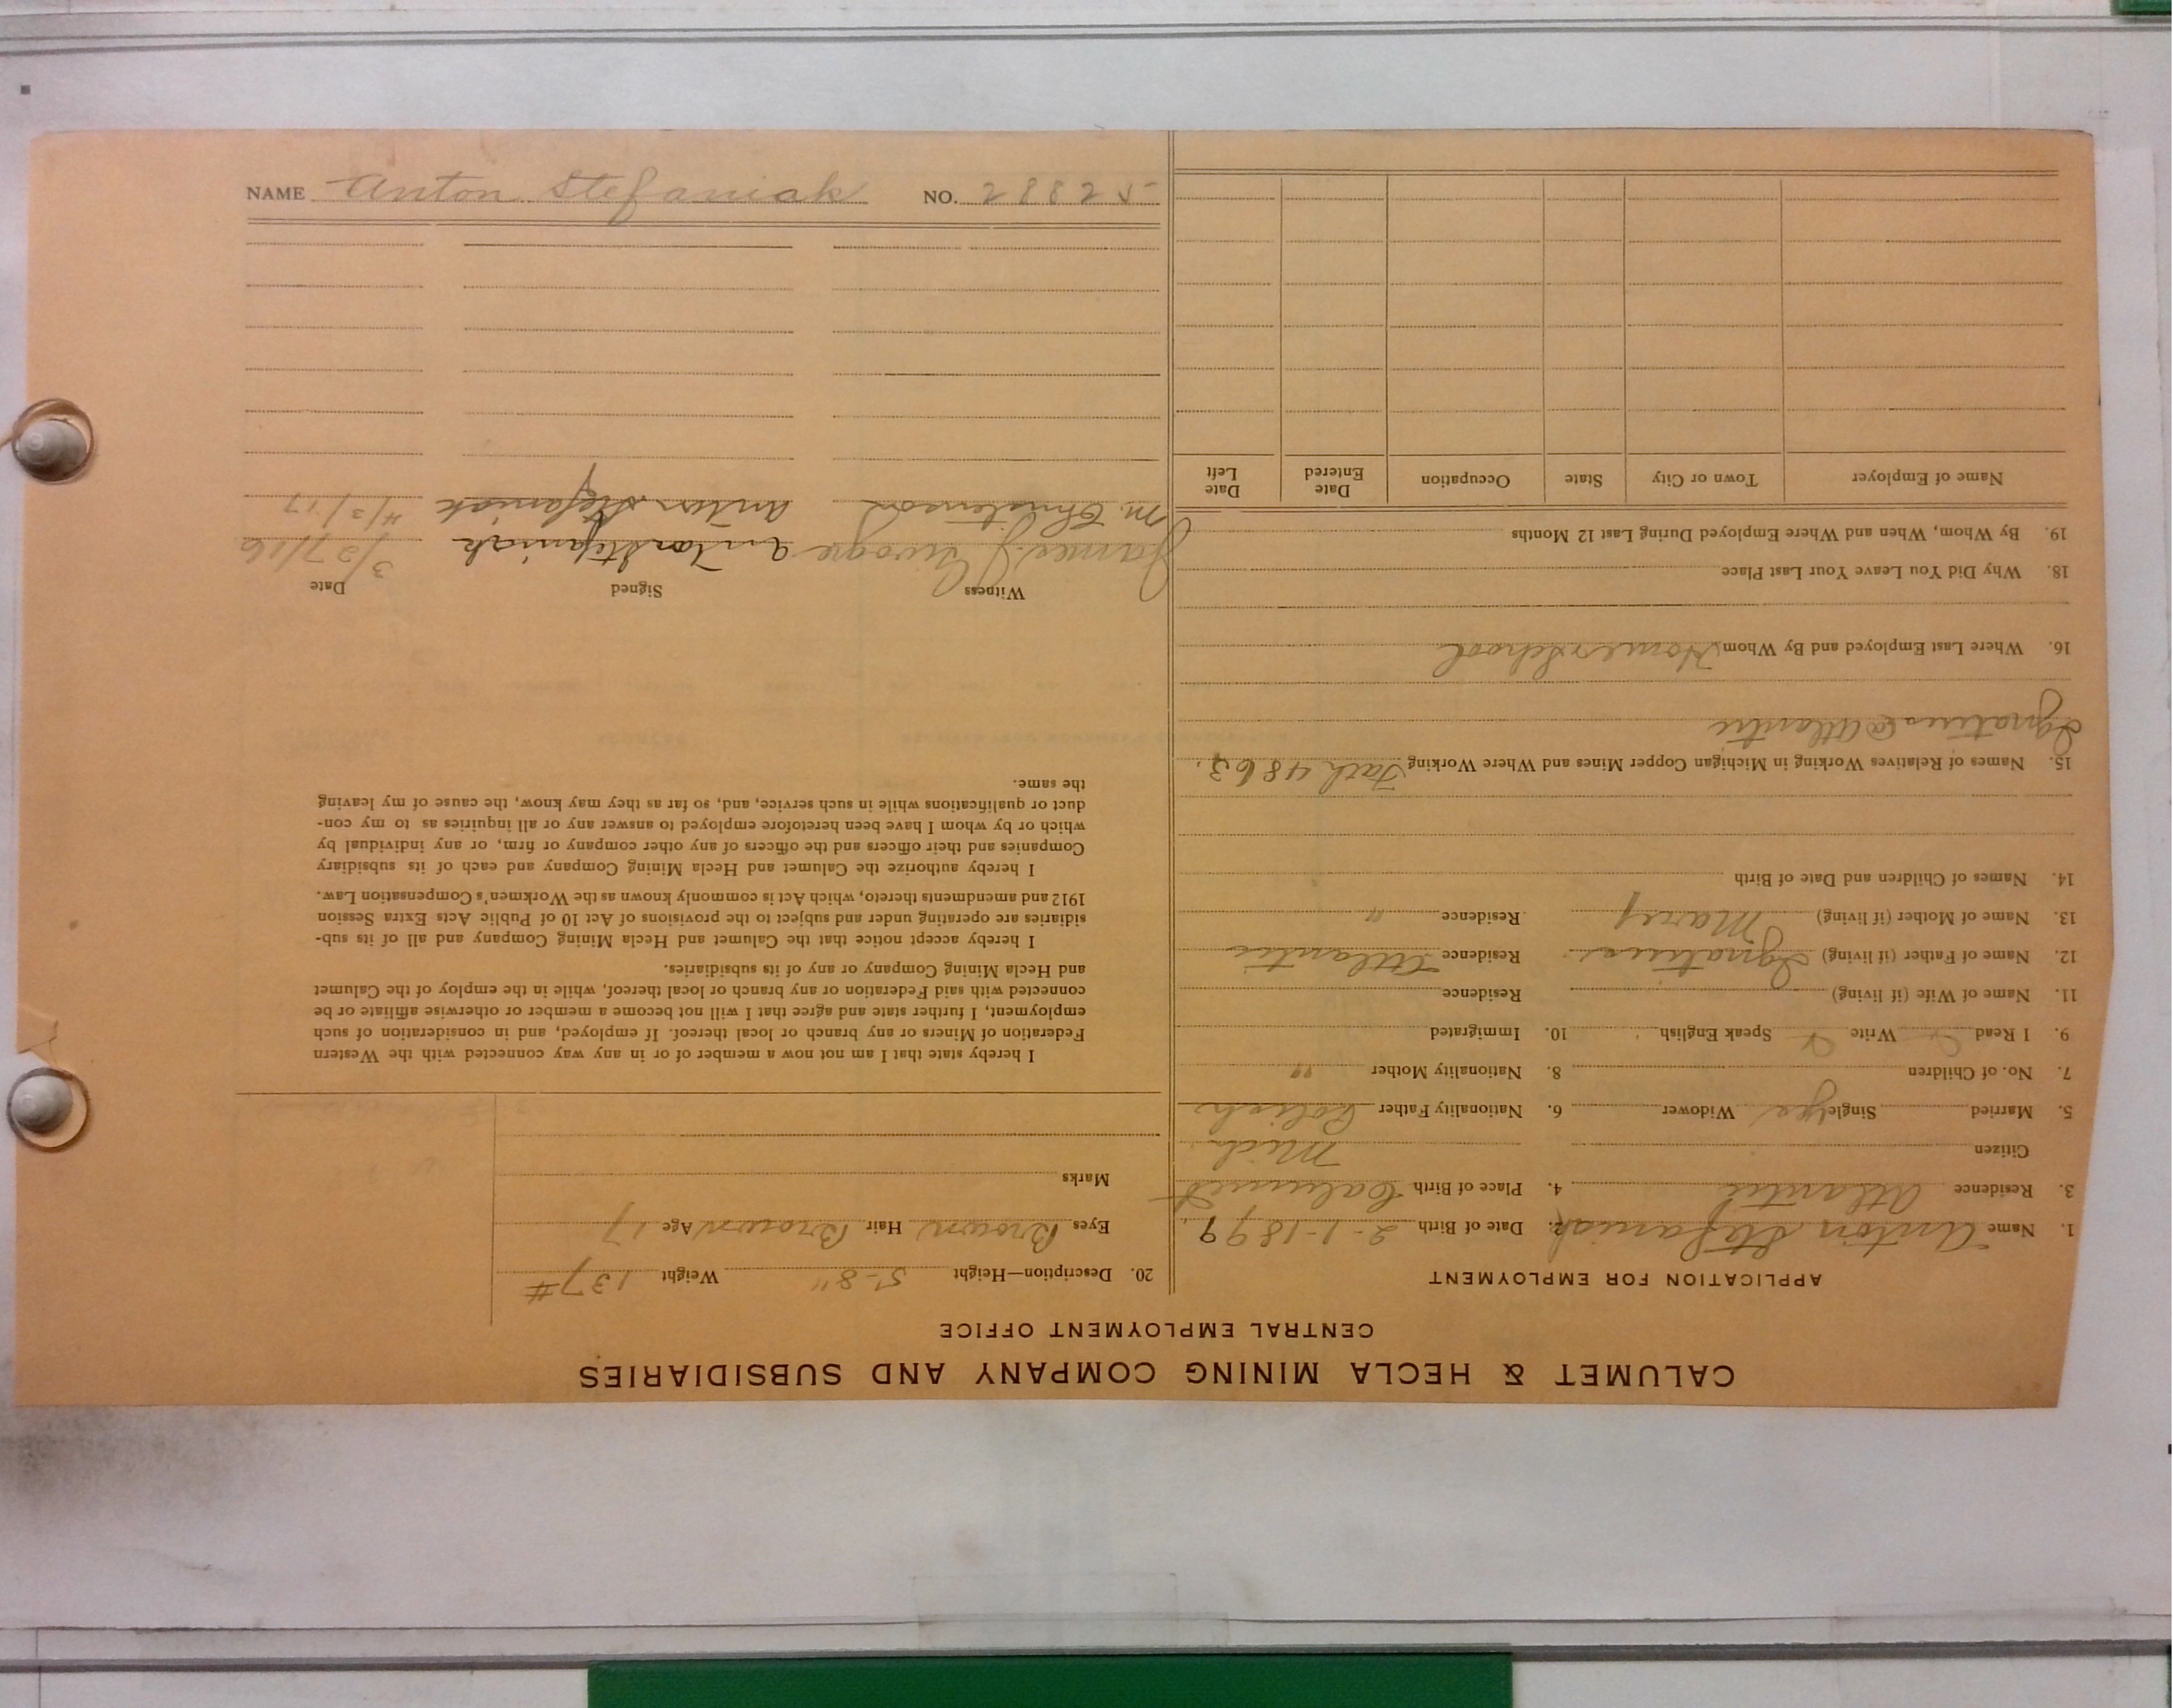 CALUMET & HECLA MINING COMPANY AND SUBSIDIARIES
CENTRAL EMPLOYMENT OFFICE
APPLICATION FOR EMPLOYMENT
1. Name Anton Stefaniak 2. Date of Birth 2-1-1899
3. Residence Atlantic 4. Place of Birth Calumet
Citizen Mich.
5. Married Single yes Widower 6. Nationality Father Polish
7. No. of Children 8. Nationality Mother "
9. I Read Write Speak English 10. Immigrated
11. Name of Wife (if living) Residence
12. Name of Father (if living) Ignatius Residence Atlantic
13. Name of Mother (if living) Mary Residence "
14. Names of Children and Date of Birth
15. Names of Relatives Working in Michigan Copper Mines and Where Working Fath 4863,
Ignatius @ Atlantic
16. Where Last Employed and By Whom Home & School
18. Why Did You Leave Your Last Place
19. By Whom, When and Where Employed During Last 12 Months
Name of Employer Town or City State Occupation Date Entered Date Left
20. Description—Height 5-8" Weight 137#
Eyes Brown Hair Brown Age 17
Marks
I hereby state that I am not now a member of or in any way connected with the Western
Federation of Miners or any branch or local thereof. If employed, and in consideration of such
employment, I further state and agree that I will not become a member or otherwise affiliate or be
connected with said Federation or any branch or local thereof, while in the employ of the Calumet
and Hecla Mining Company or any of its subsidiaries.
I hereby accept notice that the Calumet and Hecla Mining Company and all of its sub-
sidiaries are operating under and subject to the provisions of Act 10 of Public Acts Extra Session
1912 and amendments thereto, which Act is commonly known as the Workmen's Compensation Law.
I hereby authorize the Calumet and Hecla Mining Company and each of its subsidiary
Companies and their officers and the officers of any other company or firm, or any individual by
which or by whom I have been heretofore employed to answer any or all inquiries as to my con-
duct or qualifications while in such service, and, so far as they may know, the cause of my leaving
the same.
Witness Signed Date
James J. Anton Stefaniak 3/27/16
M. Christenson Anton Stefaniak 4/3/17
NAME Anton Stefaniak NO. 28825